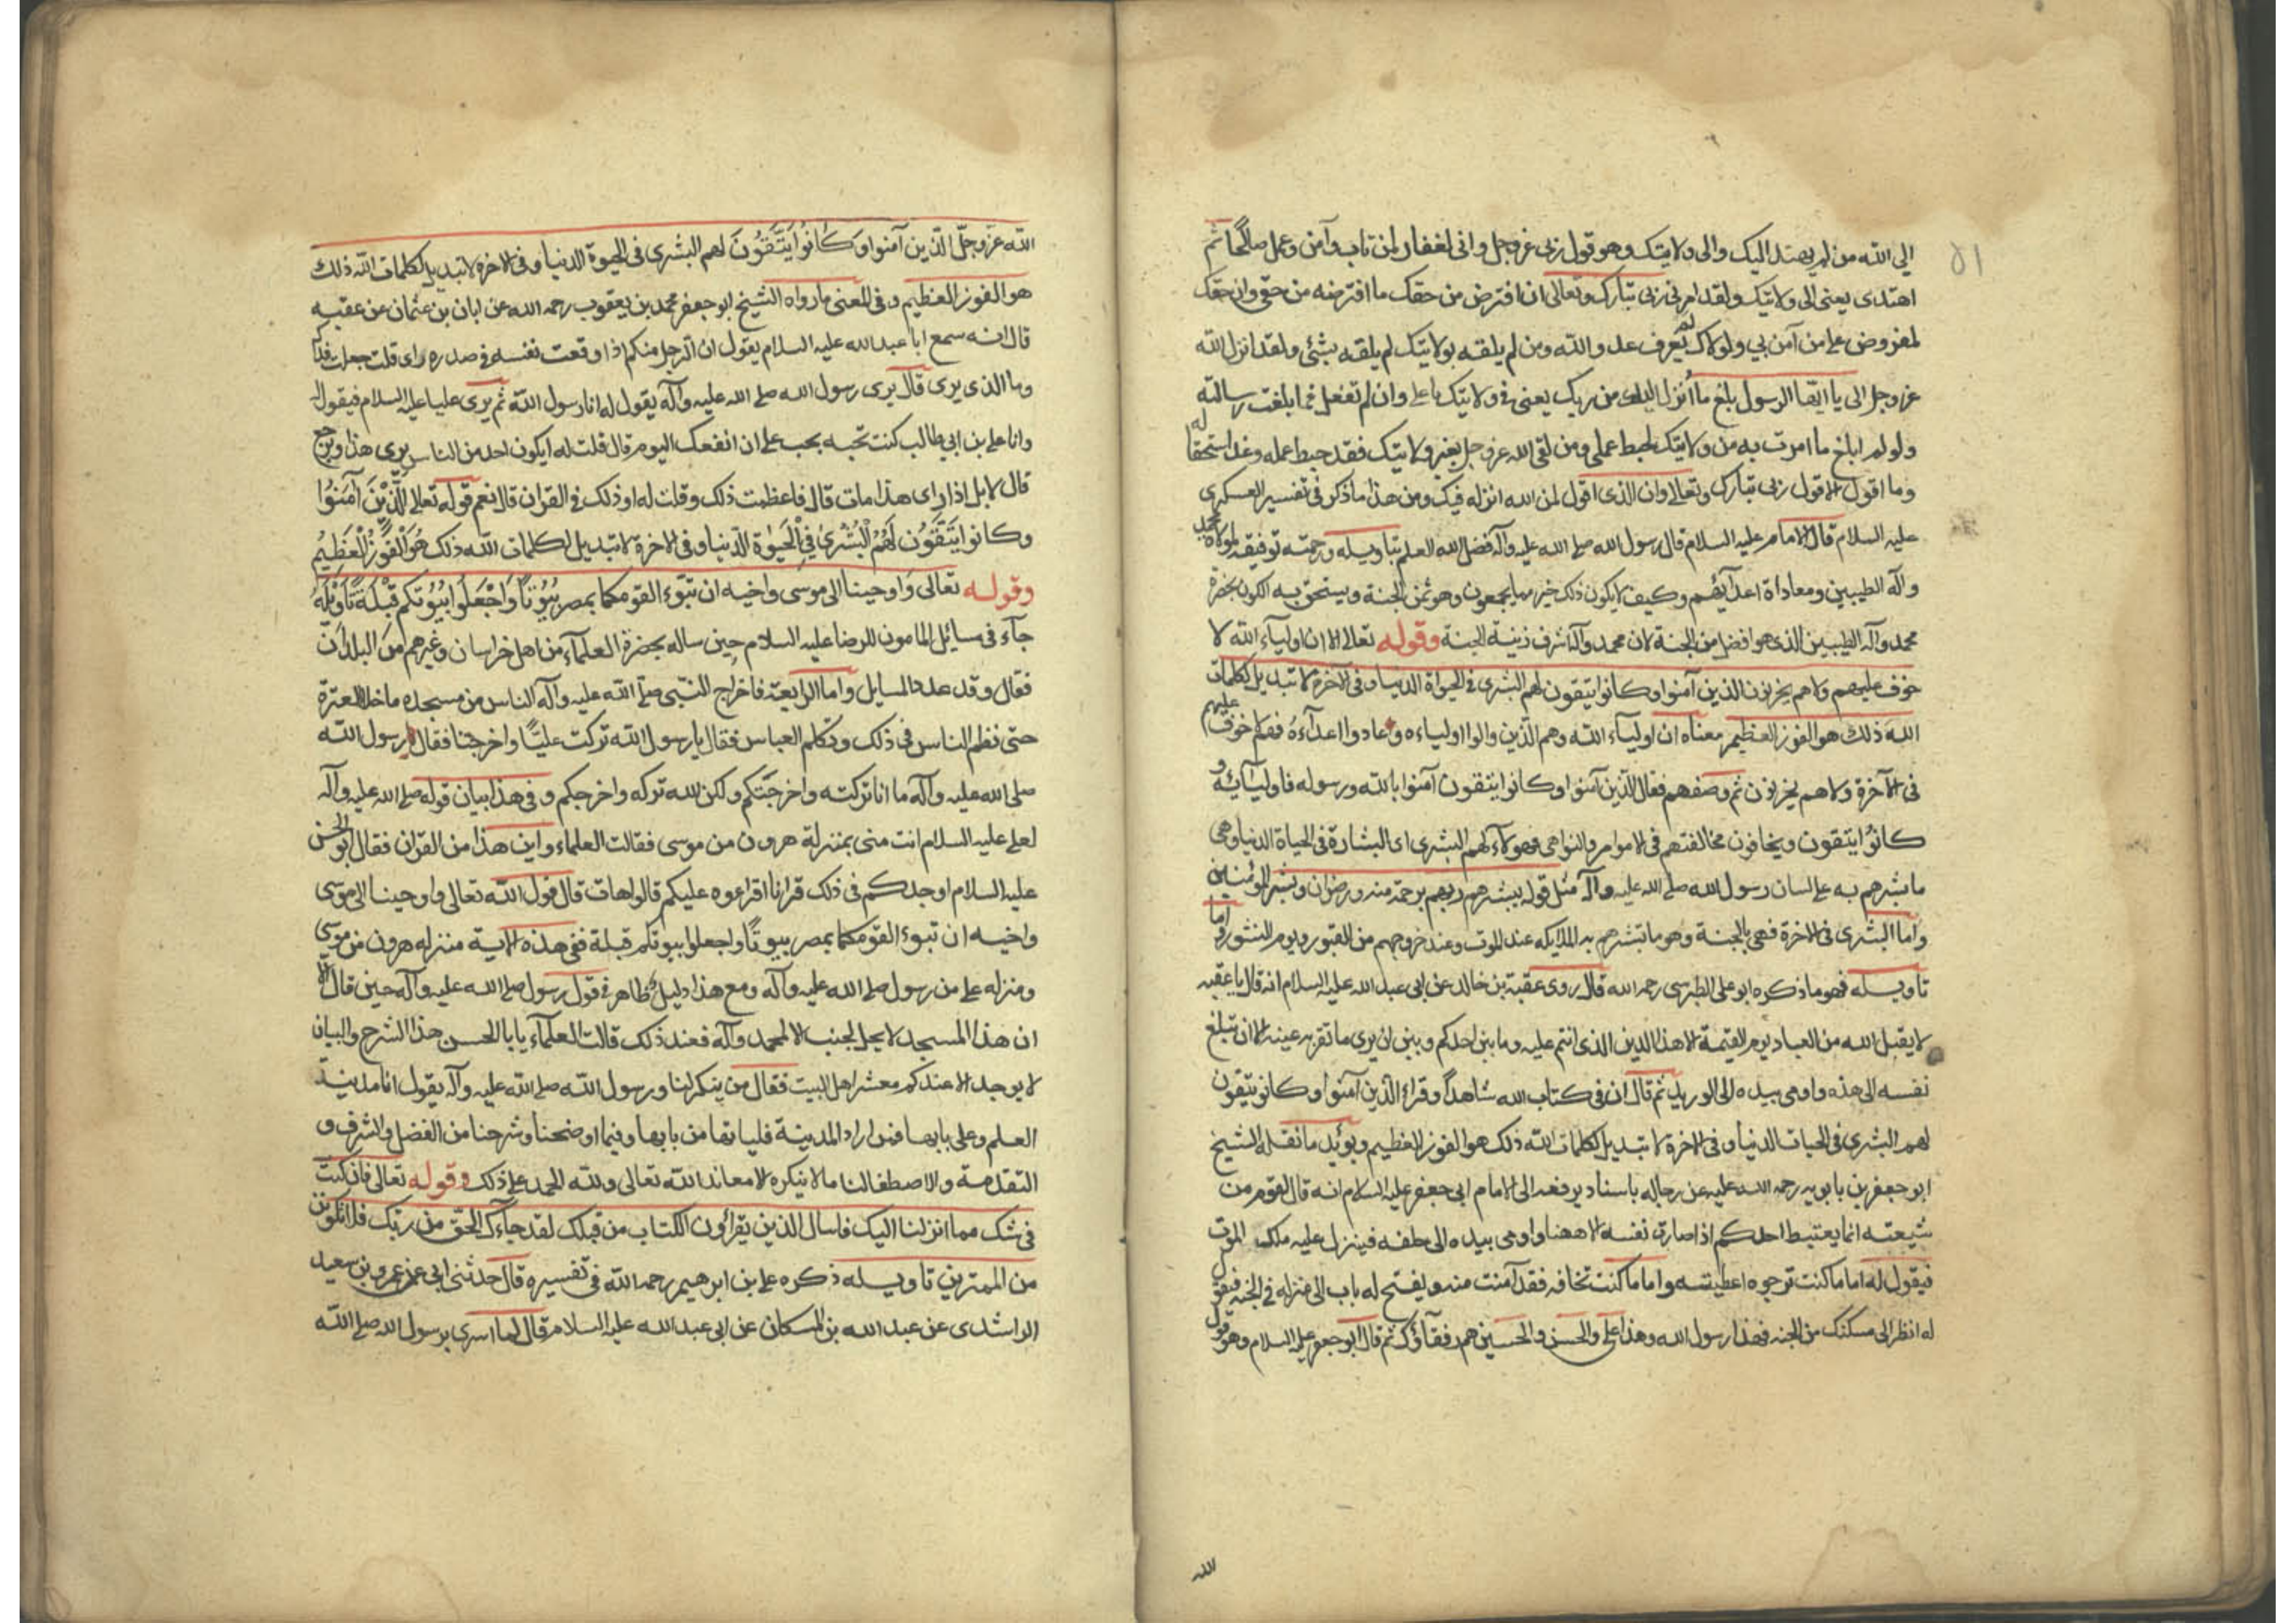 ٥١
الي الله من لم يهتد اليك والى ولايتك وهو قول ربى عز وجل وانى لغفار لمن تاب وآمن وعمل صالحًا ثم
اهتدى يعنى الى ولايتك ولقد امرنى ربى تبارك وتعالى ان افترض من حقك ما افترضه من حقى وان حقك
لمفروض على من آمن بي ولولاك لم يعرف عدو الله ومن لم يلقه بولايتك لم يلقه بشئى ولقد انزل الله
عز وجل الى يا ايها الرسول بلغ ما اُنزل اليك من ربك يعنى فى ولايتك يا على وان لم تفعل فما بلغت رسالته
ولو لم ابلغ ما امرت به من ولايتك لحبط عملى ومن لقى الله عز وجل بغير ولايتك فقد حبط عمله وغدا سحقا له
وما اقول الا قول ربى تبارك وتعالى وان الذى اقول لمن الله انزله فيك ومن هذا ما ذكر فى تفسير العسكرى
عليه السلام قال الامام عليه السلام قال رسول الله صلى الله عليه وآله فضل الله العلم بتاويله ورحمته توفيقه لموالاة محمد
وآله الطيبين ومعاداة اعدآئهم وكيف لا يكون ذلك خير مما يجمعون وهو ثمن الجنة ويستحق به الكون بحضرة
محمد وآله الطيبين الذى هو افضل من الجنة لان محمد وآله اشرف زينة الجنة وقوله تعالى الا ان اوليآء الله لا
خوف عليهم ولا هم يحزنون الذين آمنوا وكانوا يتقون لهم البشرى فى الحيوة الدنيا وفى الآخرة لا تبديل لكلمات
الله ذلك هو الفوز العظيم معناه ان اوليآء الله وهم الذين والوا اولياءه وعادوا اعدآءهُ فهم لا خوف عليهم
فى الآخرة ولا هم يحزنون ثم وصفهم فقال الذين آمنوا وكانوا يتقون آمنوا بالله ورسوله واوليآئه و
كانوُا يتقون ويخافون مخالفتهم فى الاوامر والنواهى فهولآء لهم البشرى اى البشارة فى الحياة الدنيا وهى
ما بشرهم به على لسان رسول الله صلى الله عليه وآله مثل قوله يبشرهم ربهم برحمة منه ورضوان وبشر المؤمنين
واما البشرى فى الاخرة فهى بالجنة وهو ما تبشرهم به الملايكه عند الموت وعند خروجهم من القبور ويوم النشور واما
تاويله فهو ما ذكره ابو على الطبرسى رحمه الله قال روى عقبة بن خالد عن ابى عبد الله عليه السلام انه قال يا عقبه
لا يقبل الله من العباد يوم القيمة الا هذا الدين الذى انتم عليه وما بين احدكم وبين ان يرى ما تقر به عينه الا ان تبلغ
نفسه الى هذه واومى بيده الى الوريد ثم قال ان فى كتاب الله شاهداً وقراء الذين آمنوا وكانو يتقون
لهم البشرى فى الحيات الدنيا وفى الاخرة لا تبديل لكلمات الله ذلك هو الفوز العظيم ويؤيد ما نقله الشيخ
ابو جعفر بن بابويه رحمه الله عليه عن رجاله باسناد يرفعه الى الامام ابى جعفر عليه السلام انه قال القوم من
شيعته انما يغتبط احدكم اذا صارت نفسه الا ههنا واومى بيده الى حلقه فينزل عليه ملك الموت
فيقول له اما ما كنت ترجوه اعطيته واما ما كنت تخافه فقد آمنت منه ويفتح له باب الى منزله فى الجنه فيقول
له انظر الى مسكنك من الجنه فهذا رسول الله وهذا على والحسن والحسين هم رفقآؤك ثم قال ابو جعفر عليه السلام وهو قول
الله
الله عزَّ وجلّ الذين آمنوا وَكانُوا يَتَّقُونَ لهم البشرى فى الحيوة الدنيا وفى الاخرة لا تبديل لكلمات الله ذلك
هو الفوز العظيم وفى المعنى ما رواه الشيخ ابو جعفر محمد بن يعقوب رحمه الله عن ابان بن عثمان عن عقبه
قال انه سمع ابا عبد الله عليه السلام يقول ان الرجل منكم اذا وقعت نفسه فى صدره راى قلت جعلت فداك
وما الذى يرى قال يرى رسول الله صلى الله عليه وآله يقول له انا رسول الله ثم يرى عليا عليه السلام فيقول
وانا على بن ابى طالب كنت تحبه يجب على ان انفعك اليوم قال قلت له ايكون احد من الناس يرى هذا ويرجع
قال لا بل اذا راى هذا مات قال فاعظمت ذلك وقلت له او ذلك فى القران قال نعم قوله تعالى الَّذينَ آمَنوُا
وكانوا يَتَّقُون لَهُمُ الْبُشرىٰ فِي الْحَيٰوة الدّنيا وفى الاخرة لا تبديل لكلمات الله ذلك هُوَ الْفَوْزُ الْعَظيْمُ
وقوله تعالى وَاوحينا الى موسى واخيه ان تبوَّءَا لقومكما بمصر بُيُوتاً وَاجْعَلوُا بيُوُتكم قِبْلَةً تَاوْيلُهُ
جآء فى مسائل المامون للرضا عليه السلام حين ساله بحضرة العلمآء من اهل خراسان وغيرهم من البلدان
فقال وقد عدد المسايل واما الرابعة فاخراج النّبى صلى الله عليه وآله الناس من مسجده ما خلا العترة
حتى نظم الناس فى ذلك وتكلم العباس فقال يا رسول الله تركت عليًّا واخرجتنا فقال رسول الله
صلى الله عليه وآله ما انا تركته واخرجتكم ولكن الله تركه واخرجكم وفى هذا بيان قوله صلى الله عليه وآله
لعلى عليه السلام انت منى بمنزلة هرون من موسى فقالت العلماء واين هذا من القران فقال ابو الحسن
عليه السلام اوجدكم فى ذلك قرانا اقراءوه عليكم قالوا هات قال قول الله تعالى واوحينا الى موسى
واخيه ان تبوءا لقومكما بمصر بيوتًا واجعلوا بيوتكم قبلة ففى هذه الاية منزله هرون من موسى
ومنزله على من رسول صلى الله عليه وآله ومع هذا دليل ظاهر فى قول رسول صلى الله عليه وآله حين قال الا
ان هذا المسجد لا يحل لجنب الا لمحمد وآله فعند ذلك قالت العلمآء يابا الحسن هذا الشرح والبيان
لا يوجد الا عندكم معشر اهل البيت فقال من ينكر لنا ورسول الله صلى الله عليه وآله يقول انا مدينة
العلم وعلى بابها فمن اراد المدينة فلياتها من بابها وفيما اوضحنا وشرحنا من الفضل والشرف و
التقدمة والاصطفا لنا ما لا ينكره الا معاند الله تعالى ولله الحمد على ذلك وقوله تعالى فان كنت
فى شك مما انزلنا اليك فاسال الذين يقراؤن الكتاب من قبلك لقد جآءك الحقّ من ربك فلا تكونن
من الممترين تاويله ذكره على بن ابرهيم رحمه الله فى تفسيره قال حدثنى ابى عمرو بن سعيد
الراشدى عن عبد الله بن المسكان عن ابى عبد الله عليه السلام قال لما اسرى برسول الله صلى الله